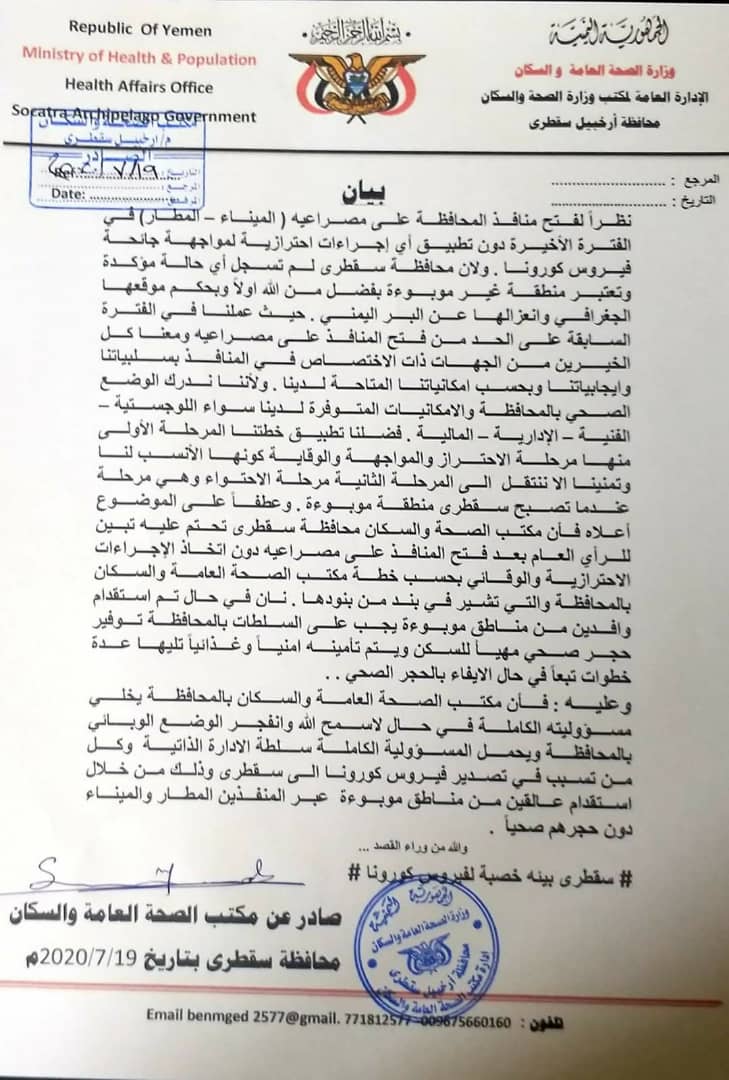 Republic Of Yemen
Ministry of Health & Population
Health Affairs Office
Socatra Archipelago Government
الجمهورية اليمنية
وزارة الصحة العامة والسكان
الإدارة العامة لمكتب وزارة الصحة والسكان
محافظة أرخبيل سقطرى
مكتب الصحة والسكان
م/ ارخبيل سقطرى
الصادر
التاريخ:
المرجع:
Ref:
Date:
المرجع :
التاريخ :
بيان
نظراً لفتح منافذ المحافظة على مصراعيه ( الميناء – المطار) في
الفترة الأخيرة دون تطبيق أي إجراءات احترازية لمواجهة جائحة
فيروس كورونا . ولان محافظة سقطرى لم تسجل أي حالة مؤكدة
وتعتبر منطقة غير موبوءة بفضل من الله اولاً وبحكم موقعها
الجغرافي وانعزالها عن البر اليمني . حيث عملنا في الفترة
السابقة على الحد من فتح المنافذ على مصراعيه ومعنا كل
الخيرين من الجهات ذات الاختصاص في المنافذ بسلبياتنا
وايجابياتنا وبحسب امكانياتنا المتاحة لدينا . ولأننا ندرك الوضع
الصحي بالمحافظة والامكانيات المتوفرة لدينا سواء اللوجستية –
الفنية – الإدارية – المالية . فضلنا تطبيق خطتنا المرحلة الأولى
منها مرحلة الاحتراز والمواجهة والوقاية كونها الأنسب لنا
وتمنينا الا ننتقل الى المرحلة الثانية مرحلة الاحتواء وهي مرحلة
عندما تصبح سقطرى منطقة موبوءة . وعطفاً على الموضوع
أعلاه فأن مكتب الصحة والسكان محافظة سقطرى تحتم عليه تبين
للرأي العام بعد فتح المنافذ على مصراعيه دون اتخاذ الإجراءات
الاحترازية والوقائي بحسب خطة مكتب الصحة العامة والسكان
بالمحافظة والتي تشير في بند من بنودها . نان في حال تم استقدام
وافدين من مناطق موبوءة يجب على السلطات بالمحافظة توفير
حجر صحي مهيأ للسكن ويتم تأمينه امنياً وغذائياً تليها عدة
خطوات تبعاً في حال الايفاء بالحجر الصحي . .
وعليه : فأن مكتب الصحة العامة والسكان بالمحافظة يخلي
مسؤوليته الكاملة في حال لاسمح الله وانفجر الوضع الوبائي
بالمحافظة ويحمل المسؤولية الكاملة سلطة الادارة الذاتية وكل
من تسبب في تصدير فيروس كورونا الى سقطرى وذلك من خلال
استقدام عالقين من مناطق موبوءة عبر المنفذين المطار والميناء
دون حجرهم صحياً .
والله من وراء القصد ...
# سقطرى بينه خصبة لفيروس كورونا #
صادر عن مكتب الصحة العامة والسكان
محافظة سقطرى بتاريخ 2020/7/19م
الجمهورية اليمنية
وزارة الصحة العامة والسكان
محافظة أرخبيل سقطرى
ادارة مكتب الصحة العامة والسكان
تلفون : 009675660160- 771812577 Email benmged 2577@gmail.